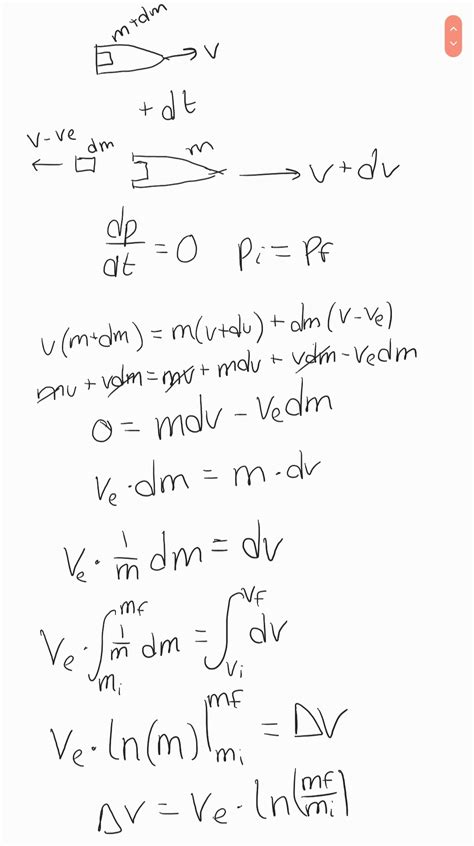 m+dm
v
+ dt
v-ve dm m v+dv
dp/dt = 0 pi = pf
v(m+dm) = m(v+dv) + dm(v-ve)
mv + vdm = mv + mdv + vdm - vedm
0 = mdv - vedm
ve · dm = m · dv
ve · 1/m dm = dv
ve · ∫mi^mf 1/m dm = ∫vi^vf dv
ve · ln(m)|mi^mf = Δv
Δv = ve · ln(mf/mi)